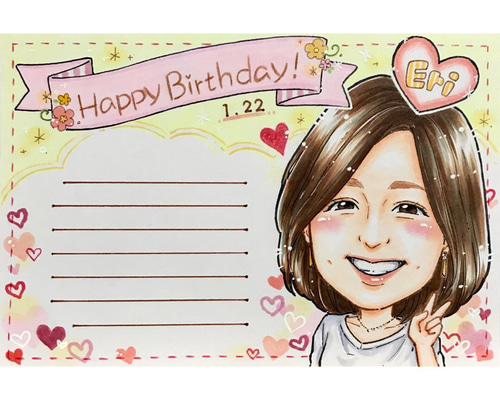 Happy Birthday!
1.22
Eri